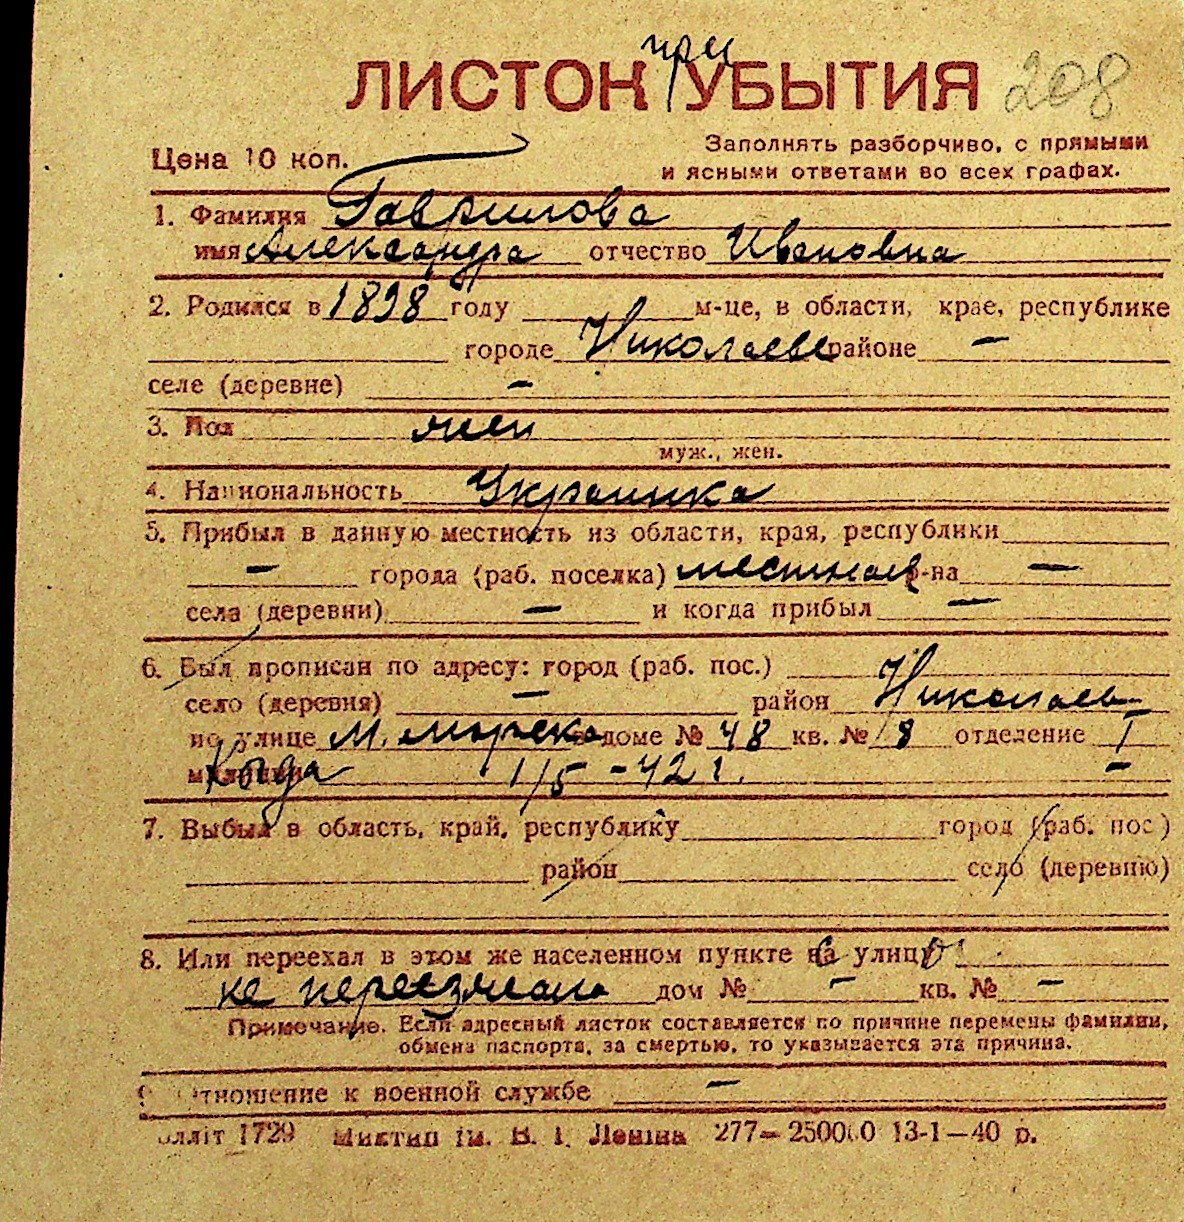 ЛИСТОК при УБЫТИЯ 208
Цена 10 коп.
Заполнять разборчиво, с прямыми
и ясными ответами во всех графах.
1. Фамилия Гаврилова
имя Александра отчество Ивановна
2. Родился в 1898 году м-це, в области, крае, республике
городе Николаеве районе —
селе (деревне) —
3. Пол жен
муж., жен.
4. Национальность Украинка
5. Прибыл в данную местность из области, края, республики
— города (раб. поселка) местная р-на —
села (деревни) — и когда прибыл —
6. Был прописан по адресу: город (раб. пос.)
село (деревня) — район Николаев
по улице М. Морска в доме № 48 кв. № 8 отделение I
милиции Когда 1/5 - 42 г. —
7. Выбыл в область, край, республику город (раб. пос.)
район село (деревню)
8. Или переехал в этом же населенном пункте на улицу
не переезжала дом № — кв. № —
Примечание. Если адресный листок составляется по причине перемены фамилии,
обмена паспорта, за смертью, то указывается эта причина.
9. Отношение к военной службе —
1729 ім. В. І. Леніна 277—250000 13-1—40 р.